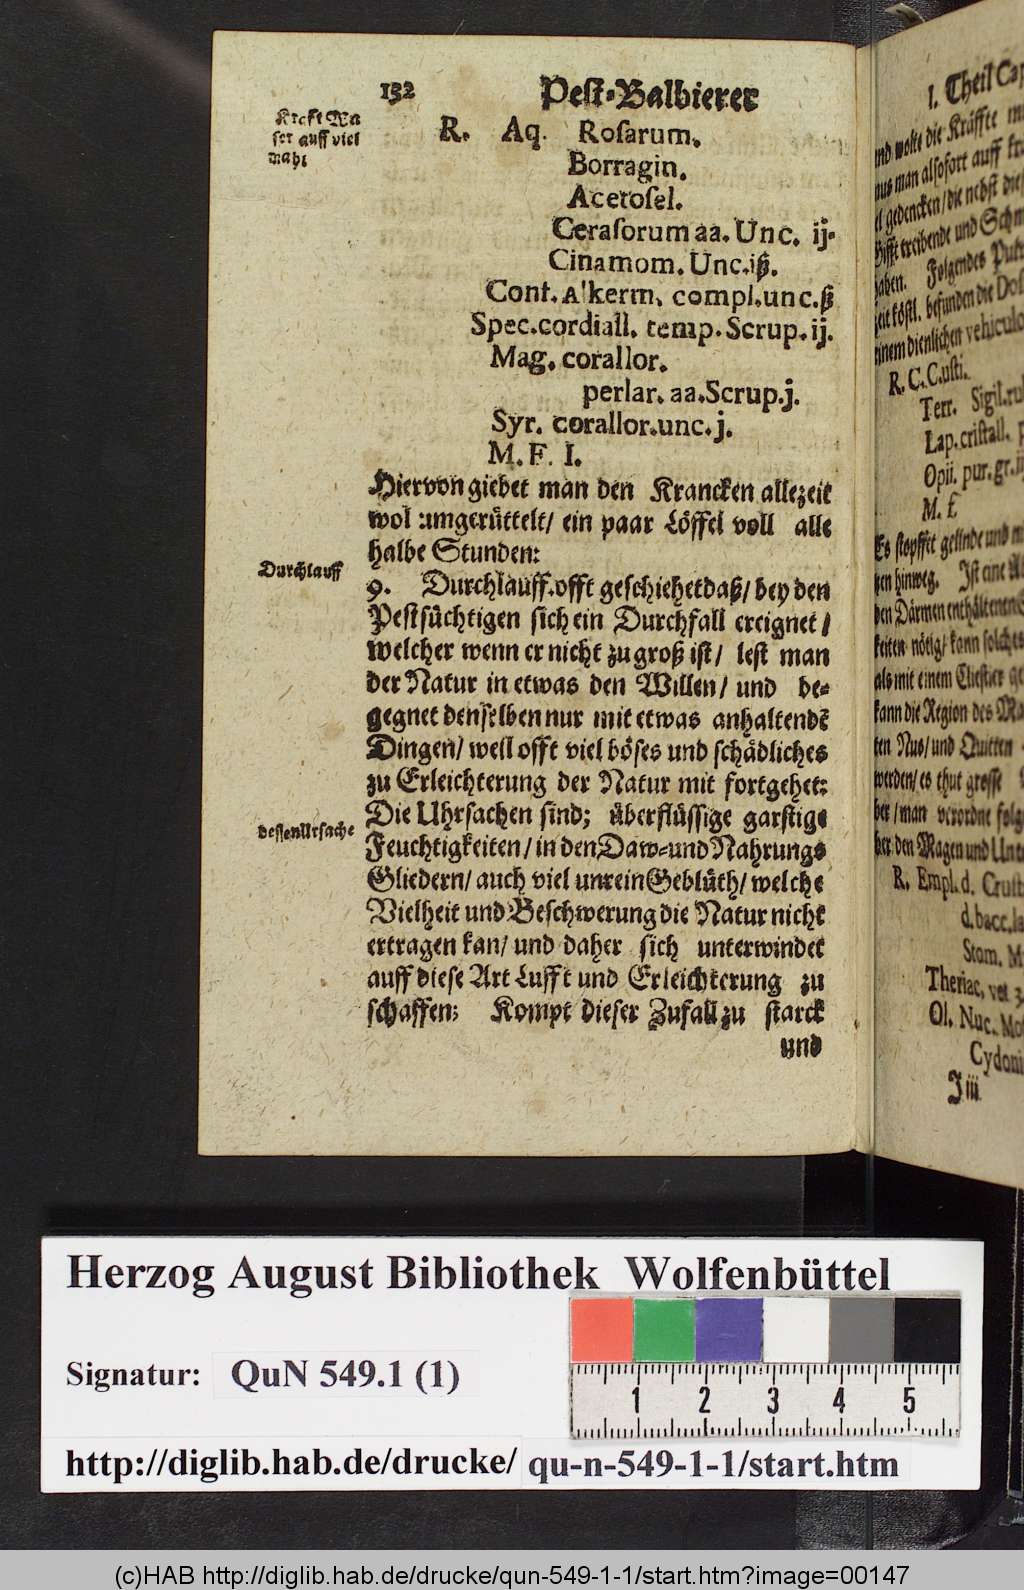 132 Pest-Balbierer
Kreft Wa
ser auff viel
mahl
R. Aq. Rosarum.
Borragin.
Acetosel.
Cerasorum aa. Unc. ij.
Cinamom. Unc. iß.
Conf. Alkerm. compl. unc. ß
Spec. cordiall. temp. Scrup. ij.
Mag. corallor.
perlar. aa. Scrup. j.
Syr. corallor. unc. j.
M. F. I.
Hiervon giebet man den Krancken allezeit
wol umgerüttelt/ ein paar Löffel voll alle
halbe Stunden:
Durchlauff
9. Durchlauff. offt geschiehet daß/ bey den
Pestsüchtigen sich ein Durchfall ereignet/
welcher wenn er nicht zu groß ist/ lest man
der Natur in etwas den Willen/ und be-
gegnet denselben nur mit etwas anhaltendē
Dingen/ weil offt viel böses und schädliches
zu Erleichterung der Natur mit fortgehet:
Die Uhrsachen sind; überflüssige garstige
dessen Ursache
Feuchtigkeiten/ in den Daw- und Nahrungs
Gliedern/ auch viel unrein Geblüth/ welche
Vielheit und Beschwerung die Natur nicht
ertragen kan/ und daher sich unterwindet
auff diese Art Lufft und Erleichterung zu
schaffen; Kompt dieser Zufall zu starck
und
I. Theil Cap
und wolte die Kräffte
mus man alsofort auff
gedencken/ die nebst
treibende und
haben. Folgendes
köstl. befunden die
einem dienlichen vehiculo
R. C. C. usti.
Terr. Sigil.
Lap. cristall.
Opii. pur. gr.
M. f.
Es stopffet gelinde und
hinweg. Ist eine
den Därmen enthaltenen
keiten nötig/ kann solches
als mit einem Clestier
kann die Region des
ten Nus/ und Quitten
werden/ es thut grosse
ber/ man verordne
ber den Magen und
R. Empl. d.
d. bacc.
Stom.
Theriac. vet
Ol. Nuc.
Cydoni
I iii
Herzog August Bibliothek Wolfenbüttel
Signatur: QuN 549.1 (1)
1 2 3 4 5
http://diglib.hab.de/drucke/ qu-n-549-1-1/start.htm
(c)HAB http://diglib.hab.de/drucke/qun-549-1-1/start.htm?image=00147